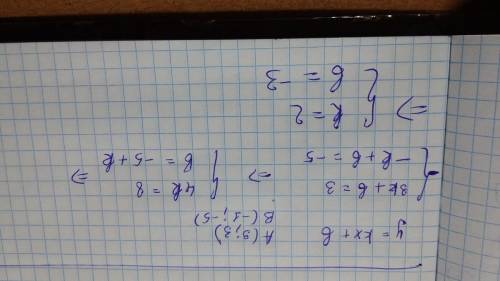 y = kx + b
A (3; 3)
B (-1; -5)
{ 3k + b = 3
-k + b = -5
=>
{ 4k = 8
b = -5 + k
=>
=> { k = 2
b = -3